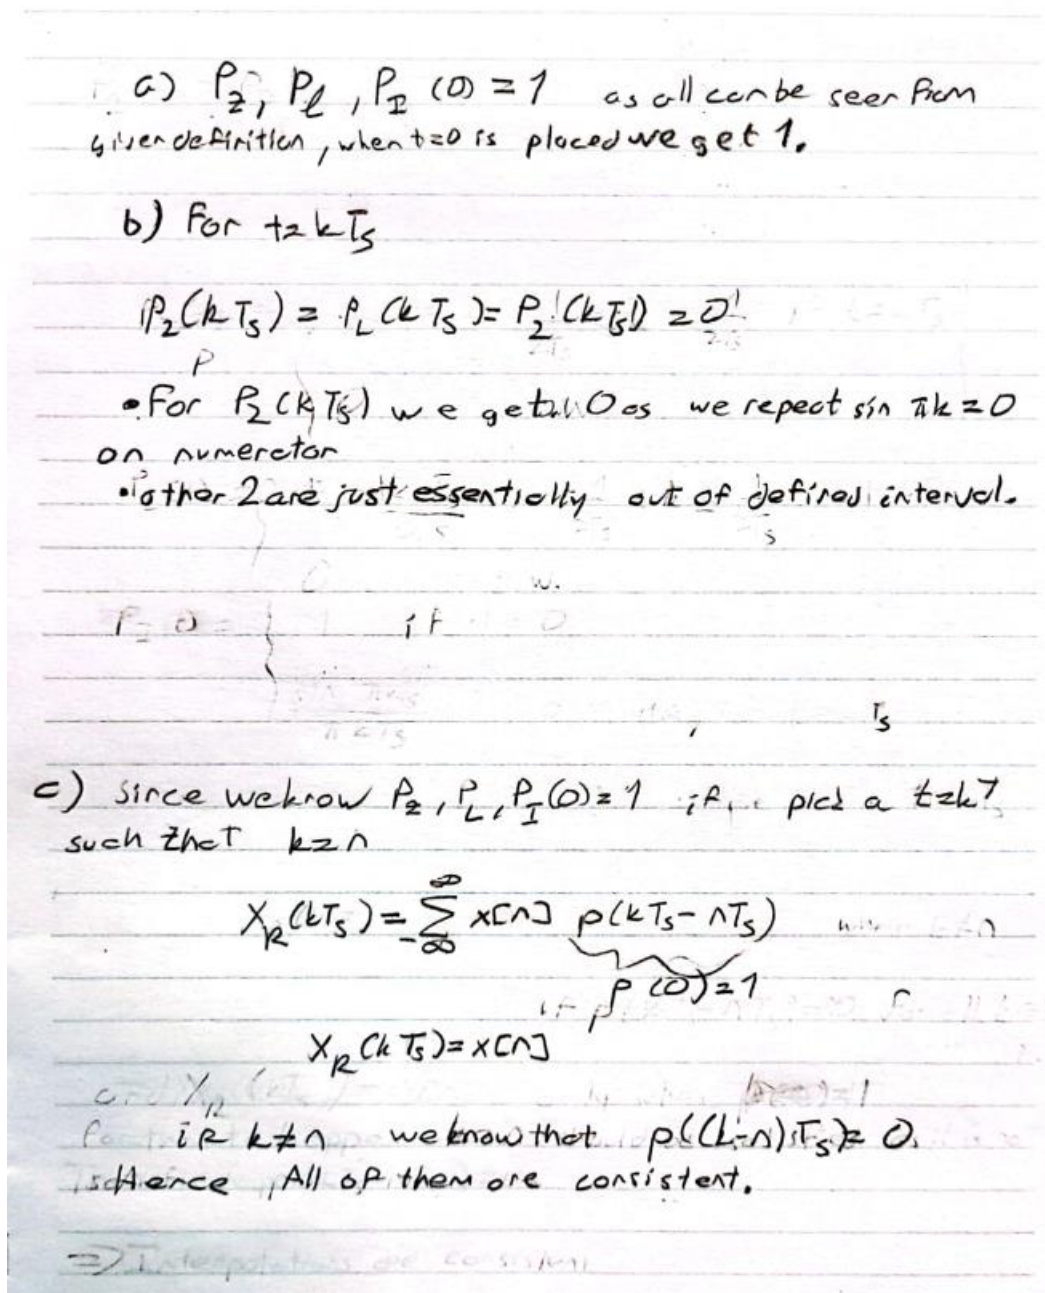 a) P_Z, P_L, P_I (0) = 1 as all can be seen from
given definition, when t=0 is placed we get 1.
b) For t=kTs
P_Z(kTs) = P_L(kTs) = P_I(kTs) = 0
P
• For P_I(kTs) we get 0 as we repect sin πk = 0
on numerator
• other 2 are just essentially out of defined interval.
s
w.
if
Ts
c) Since we know P_Z, P_L, P_I(0)=1 if pick a t=kT
such that k=n
X_R(kTs) = ∑ x[n] p(kTs - nTs)
∞
-∞
p(0)=1
X_R(kTs) = x[n]
if k≠n we know that p((k-n)Ts) = 0.
Hence All of them are consistent.
=> Interpolations are consistent